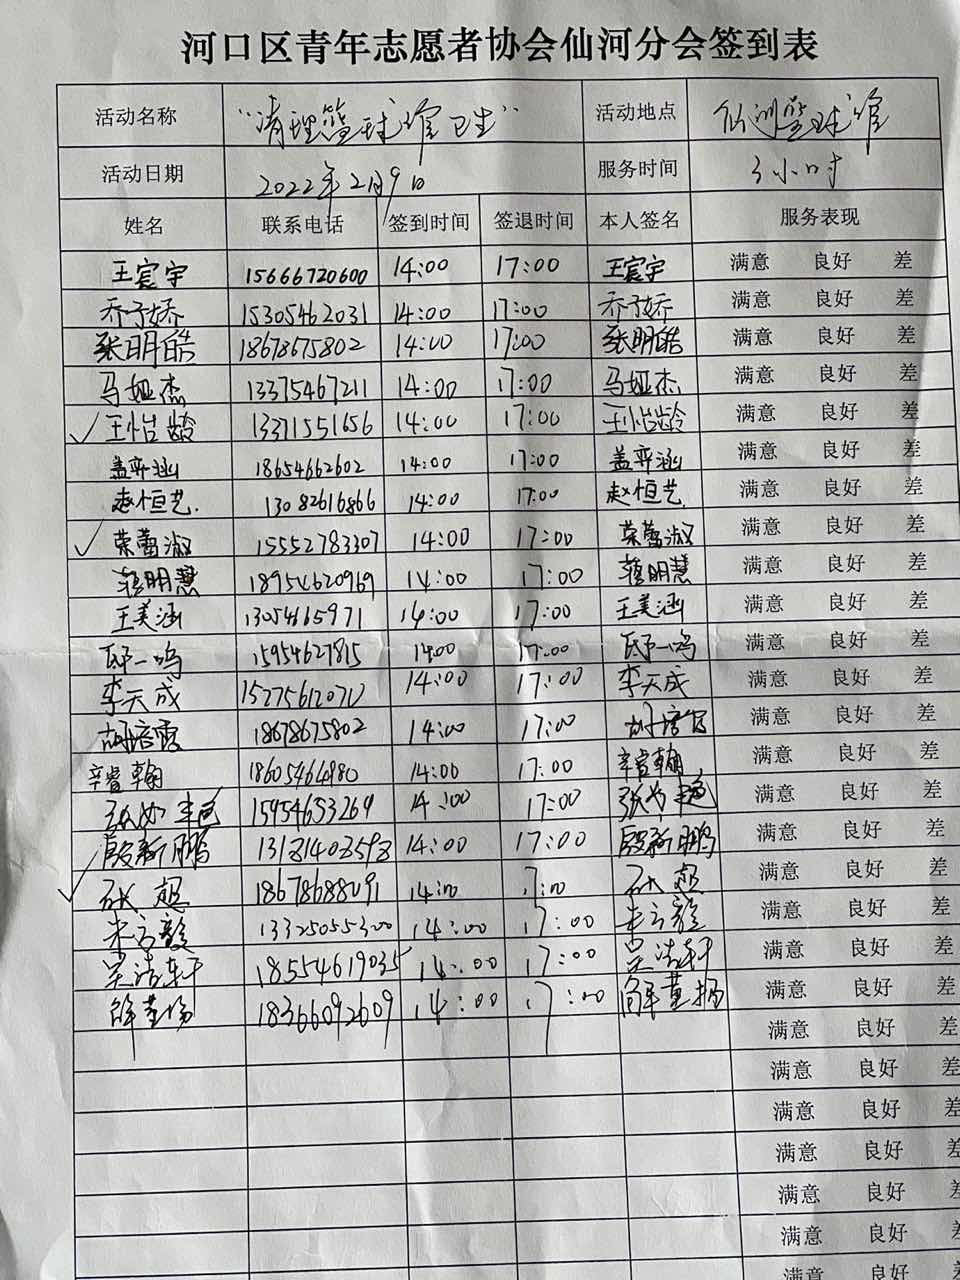 河口区青年志愿者协会仙河分会签到表
活动名称 "清理篮球馆卫生" 活动地点 仙河篮球馆
活动日期 2022年2月9日 服务时间 3小时
姓名 联系电话 签到时间 签退时间 本人签名 服务表现
王宸宇 15666720600 14:00 17:00 王宸宇 满意 良好 差
乔子娇 15305462031 14:00 17:00 乔子娇 满意 良好 差
张明皓 18678675802 14:00 17:00 张明皓 满意 良好 差
马娅杰 13375467211 14:00 17:00 马娅杰 满意 良好 差
王怡龄 13371551656 14:00 17:00 王怡龄 满意 良好 差
盖弈涵 18654662602 14:00 17:00 盖弈涵 满意 良好 差
赵恒艺. 13082616866 14:00 17:00 赵恒艺 满意 良好 差
荣蕾淑 15552783307 14:00 17:00 荣蕾淑 满意 良好 差
韩明慧 18954620969 14:00 17:00 韩明慧 满意 良好 差
王美涵 1305465971 14:00 17:00 王美涵 满意 良好 差
邸一鸣 15954627815 14:00 17:00 邸一鸣 满意 良好 差
李天成 14:00 17:00 李天成 满意 良好 差
胡培霞 18678675802 14:00 17:00 满意 良好 差
辛睿翰 18605464980 14:00 17:00 辛睿翰 满意 良好 差
15954653269 14:00 17:00 满意 良好 差
殷新鹏 14:00 17:00 殷新鹏 满意 良好 差
张超 18678688091 14:00 17:00 张超 满意 良好 差
13325055300 14:00 17:00 满意 良好 差
吴浩轩 18554619035 14:00 17:00 吴浩轩 满意 良好 差
18366092609 14:00 17:00 满意 良好 差
满意 良好 差
满意 良好 差
满意 良好 差
满意 良好 差
满意 良好 差
满意 良好 差
满意 良好